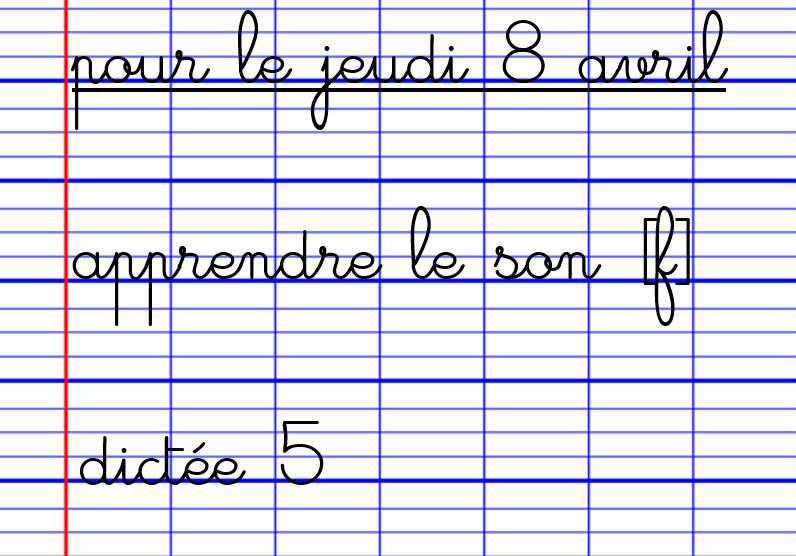 pour le jeudi 8 avril
apprendre le son [f]
dictée 5